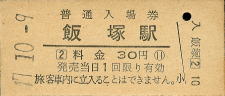 普通入場券
飯塚駅
② 料金 30円 ⑪
発売当日1回限り有効
旅客車内に立入ることはできません。
10.-9
入 飯塚 2 10
小